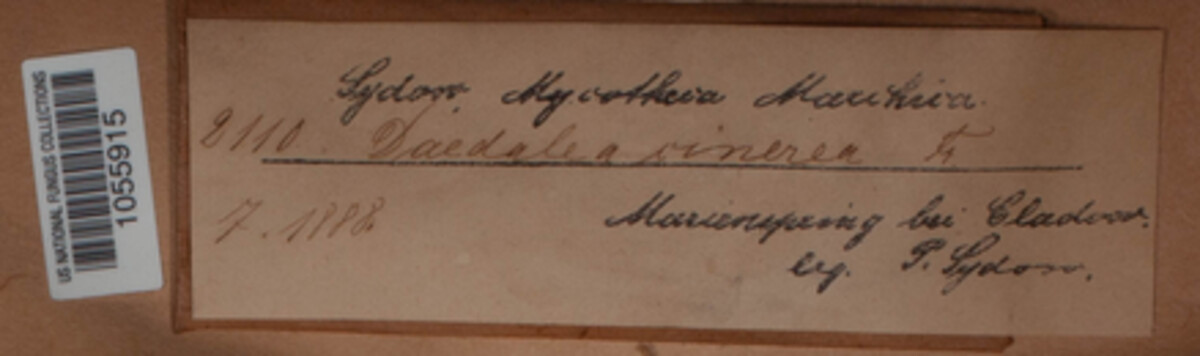 US NATIONAL FUNGUS COLLECTIONS
1055915
Sydow, Mycotheca Marchica.
2110. Daedalea cinerea Fr.
7. 1888.
Marienspring bei Cladow.
leg. P. Sydow.